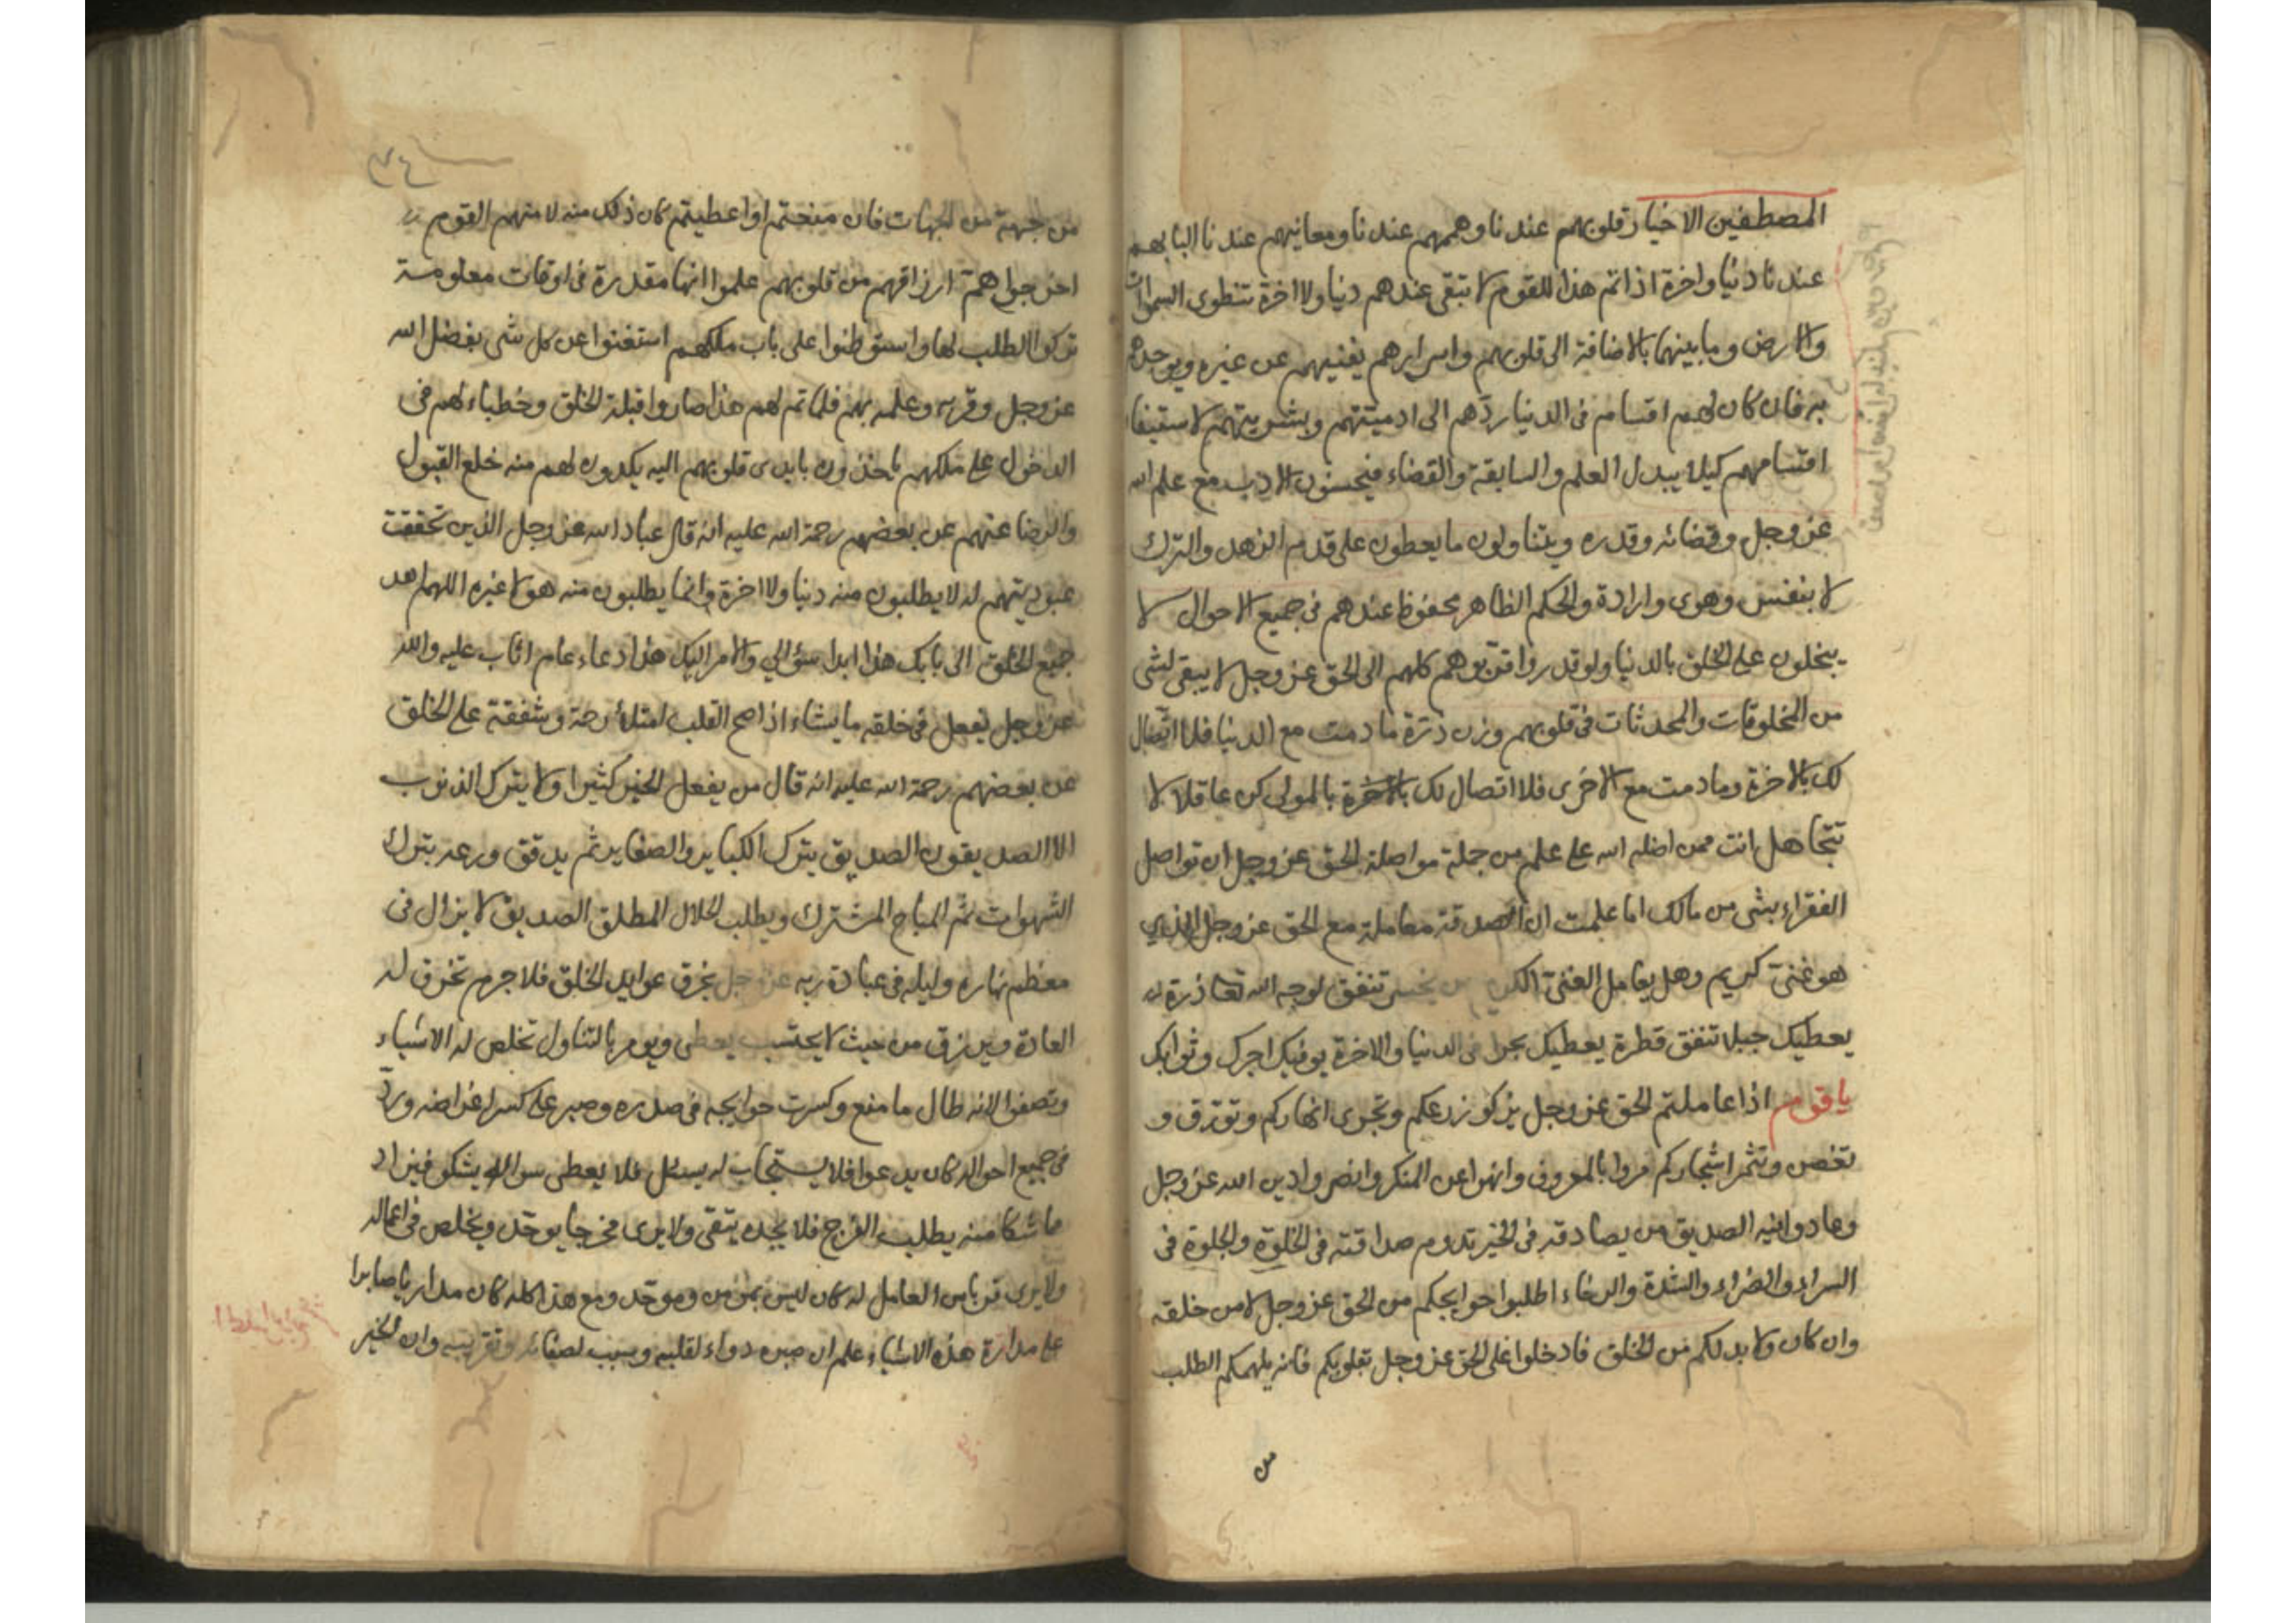 المصطفين الاخيار قلوبهم عندنا وهممهم عندنا ومعانيهم عندنا البابهم
عندنا دنيا واخرة اذا تم هذا للقوم لا تبقى عندهم دنيا ولا اخرة تنطوى السموات
والارض وما بينهما بالاضافة الى قلوبهم واسرارهم يفنيهم عن غيره ويوجدهم
به فان كان لهم اقسام فى الدنيا ردّهم الى ادميتهم وبشريتهم لاستيفا
اقسامهم كيلا يبدل العلم والسابقة والقضاء فيحسنون الادب مع علم الله
عز وجل وقضائه وقدره ويتناولون ما يعطون على قدم الزهد والترك
لا بنفس وهوى وارادة والحكم الظاهر محفوظ عندهم فى جميع الاحوال لا
يبخلون على الخلق بالدنيا ولو قدروا قرّبوهم كلهم الى الحق عز وجل لا يبقى لشى
من المخلوقات والمحدثات فى قلوبهم وزن ذرّة ما دمت مع الدنيا فلا اتّصال
لك بالاخرة وما دمت مع الاخرى فلا اتصال لك بالمولى كن عاقلا لا
تتجاهل انت ممن اضله الله على علم من جملة مواصلة الحق عز وجل ان تواصل
الفقراء بشى من مالك اما علمت ان الصدقة معاملة مع الحق عز وجل الذي
هو غنىّ كريم وهل يعامل الغنىّ الكريم من يخسر تنفق لوجه الله تعا ذرة له
يعطيك جبلا تنفق قطرة يعطيك بحرا فى الدنيا والاخرة يوفيك اجرك وثوابك
يا قوم اذا عاملتم الحق عز وجل يزكو زرعكم وتجرى انهاركم وتورق و
تغصن وتثمر اشجاركم مروا بالمعروف وانهوا عن المنكر وانصروا دين الله عز وجل
وعادوا فيه الصديق من يصادقه فى الخير تدوم صداقته فى الخلوة والجلوة فى
السراء والضراء والشدة والرخاء اطلبوا حوايجكم من الحق عز وجل لا من خلقه
وان كان ولا بد لكم من الخلق فادخلوا على الحق عز وجل بقلوبكم فانه يلهمكم الطلب
من
من جهة من الجهات فان منعتم او اعطيتم كان ذلك منه لا منهم القوم
اخرجوا همّ ارزاقهم من قلوبهم علموا انها مقدرة فى اوقات معلومة
تركوا الطلب لها واستوطنوا على باب ملكهم استغنوا عن كل شى بفضل الله
عز وجل وقربه وعلمه بهم فلما تم لهم هذا صاروا قبلة الخلق وخطباء لهم فى
الدخول على ملكهم ياخذون بايدى قلوبهم اليه يكدون لهم منه خلع القبول
والرضا عنهم عن بعضهم رحمة الله عليه انه قال عباد الله عز وجل الذين تحققت
عبوديتهم له لا يطلبون منه دنيا ولا اخرة وانما يطلبون منه هو لا غيره اللهم اهد
جميع الخلق الى بابك هذا ابدا سؤالي والامر اليك هذا دعاء عام اثاب عليه والله
عز وجل يفعل فى خلقه ما يشاء اذا صح القلب امتلأ رحمة وشفقة على الخلق
عن بعضهم رحمة الله عليه انه قال من يفعل الخير كثيرا ولا يترك الذنوب
الا الصديقون الصديق يترك الكباير والصغاير ثم يدقق ورعه بترك
الشهوات ثم المباح المشترك ويطلب الحلال المطلق الصديق لا يزال فى
معظم نهاره وليله فى عبادة ربه عز وجل يخرق عوايد الخلق فلا جرم تخرق له
العادة ويرزق من حيث لا يحتسب يعطى ويومر بالتناول تخلص له الاشياء
وتصفوا لانه طال ما منع وكسرت حوايجه فى صدره وصبر على كسر اغراضه وردّ
فى جميع احواله كان يدعوا فلا يستجاب له يسئل فلا يعطى سواله يشكو فيزاد
ما شكا منه يطلب الفرج فلا يجده يتقى ولا يرى مخرجا يوحّد ويخلص فى اعماله
ولا يرى قربا من العامل له كان ليس بمؤمن وموحّد ومع هذا كله كان مداريا صابرا
على مدارة هذه الاشياء علم ان صبره دواء لقلبه وسبب لصفائه وتقريبه وان الخير